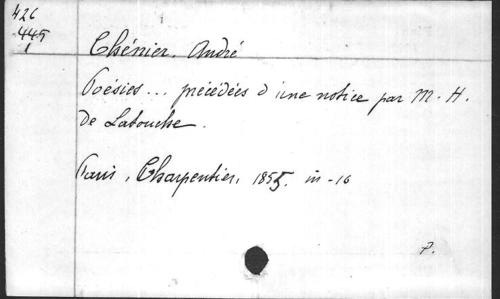 426
445
1
Chénier, André
Poésies... précédées d'une notice par M. H.
de Latouche.
Paris, Charpentier, 1855. in-16
P.